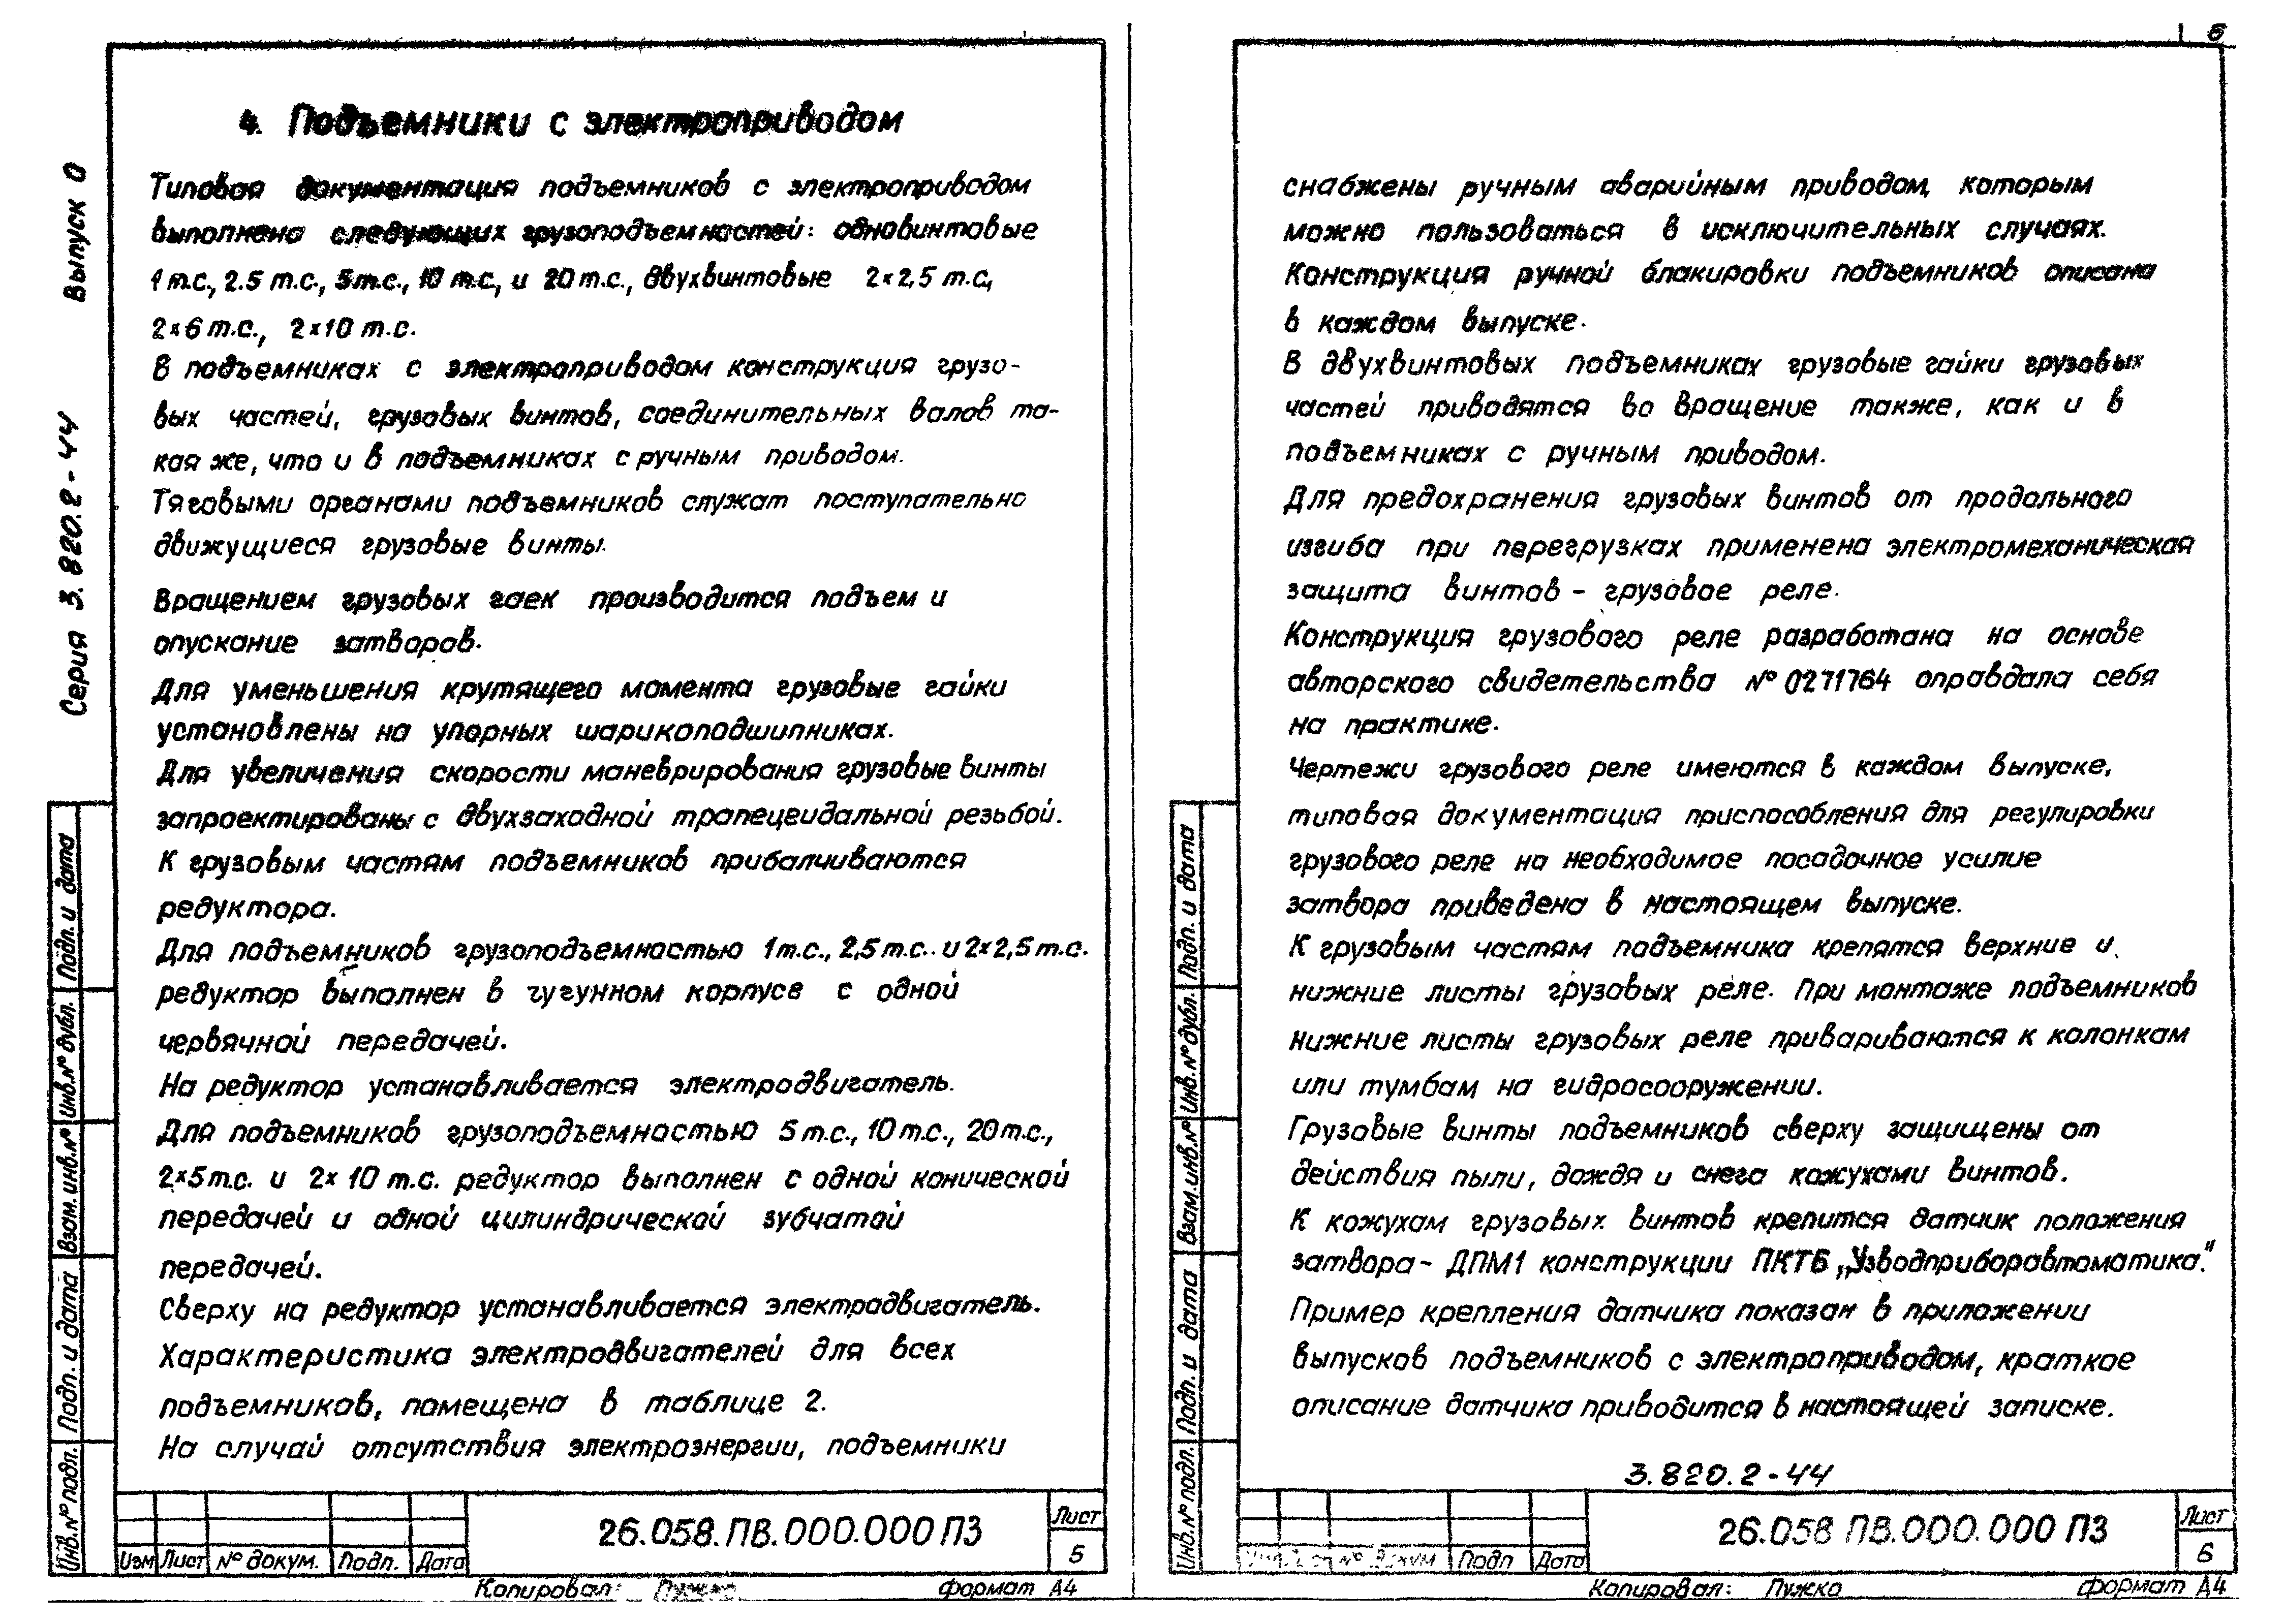 4. Подъемники с электроприводом
Типовая документация подъемников с электроприводом
выполнена следующих грузоподъемностей: одновинтовые
1 т.с., 2.5 т.с., 5т.с., 10 т.с, и 20 т.с., двухвинтовые 2×2,5 т.с,
2×6 т.с., 2×10 т.с.
В подъемниках с электроприводом конструкция грузо-
вых частей, грузовых винтов, соединительных валов та-
кая же, что и в подъемниках с ручным приводом.
Тяговыми органами подъемников служат поступательно
движущиеся грузовые винты.
Вращением грузовых гаек производится подъем и
опускание затворов.
Для уменьшения крутящего момента грузовые гайки
установлены на упорных шарикоподшипниках.
Для увеличения скорости маневрирования грузовые винты
запроектированы с двухзаходной трапецеидальной резьбой.
К грузовым частям подъемников прибалчиваются
редуктора.
Для подъемников грузоподъемностью 1т.с., 2,5 т.с.. и 2×2,5 т.с.
редуктор выполнен в чугунном корпусе с одной
червячной передачей.
На редуктор устанавливается электродвигатель.
Для подъемников грузоподъемностью 5 т.с., 10 т.с., 20 т.с.,
2×5т.с. и 2× 10 т.с. редуктор выполнен с одной конической
передачей и одной цилиндрической зубчатой
передачей.
Сверху на редуктор устанавливается электродвигатель.
Характеристика электродвигателей для всех
подъемников, помещена в таблице 2.
На случай отсутствия электроэнергии, подъемники
Серия 3.820.2-44 Выпуск 0
Подп. и дата
Инв.№ дубл.
Взам.инв.№
Подп. и дата
Инв.№ подл.
26.058.ПВ.000.000 ПЗ
Лист
5
Изм Лист № докум. Подп. Дата
Копировал: Пужко
формат А4
6
снабжены ручным аварийным приводом, которым
можно пользоваться в исключительных случаях.
Конструкция ручной блакировки подъемников описана
в каждом выпуске.
В двухвинтовых подъемниках грузовые гайки грузовых
частей приводятся во вращение также, как и в
подъемниках с ручным приводом.
Для предохранения грузовых винтов от продольного
изгиба при перегрузках применена электромеханическая
защита винтов - грузовое реле.
Конструкция грузового реле разработана на основе
авторского свидетельства № 0271764 оправдала себя
на практике.
Чертежи грузового реле имеются в каждом выпуске,
типовая документация приспособления для регулировки
грузового реле на необходимое посадочное усилие
затвора приведена в настоящем выпуске.
К грузовым частям подъемника крепятся верхние и
нижние листы грузовых реле. При монтаже подъемников
нижние листы грузовых реле привариваются к колонкам
или тумбам на гидросооружении.
Грузовые винты подъемников сверху защищены от
действия пыли, дождя и снега кожухами винтов.
К кожухам грузовых винтов крепится датчик положения
затвора - ДПМ1 конструкции ПКТБ „Узводприборавтоматика".
Пример крепления датчика показан в приложении
выпусков подъемников с электроприводом, краткое
описание датчика приводится в настоящей записке.
3.820.2-44
Подп. и дата
Инв.№ дубл.
Взам.инв.№
Подп. и дата
Инв.№ подл.
26.058 ПВ.000.000 ПЗ
Лист
6
№ докум Подп Дата
Копировал: Пужко
формат А4